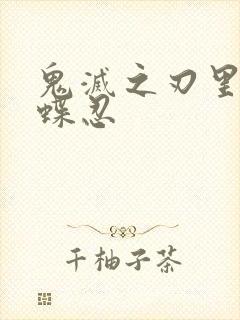 鬼滅之刃里
蝶忍
千柚子茶